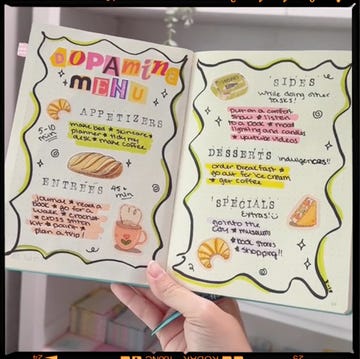 DOPAMINE
MENU
APPETIZERS
5-10
min
make bed * skincare *
planner * tidy my
desk * make coffee
ENTRÉES
45+
min
journal * read a
book * go for a
walk * crochet
* cross stitch
kit * paint *
plan a trip!
SIDES
while doing other
tasks!
put on a comfort
show * listen
to a book * mood
lighting and candles
* youtube videos
DESSERTS
indulgences!!
order breakfast *
go out for ice cream
* get coffee
SPECIALS
Extras!
go into the
city * museum
* book stores
* shopping!!
KODAK